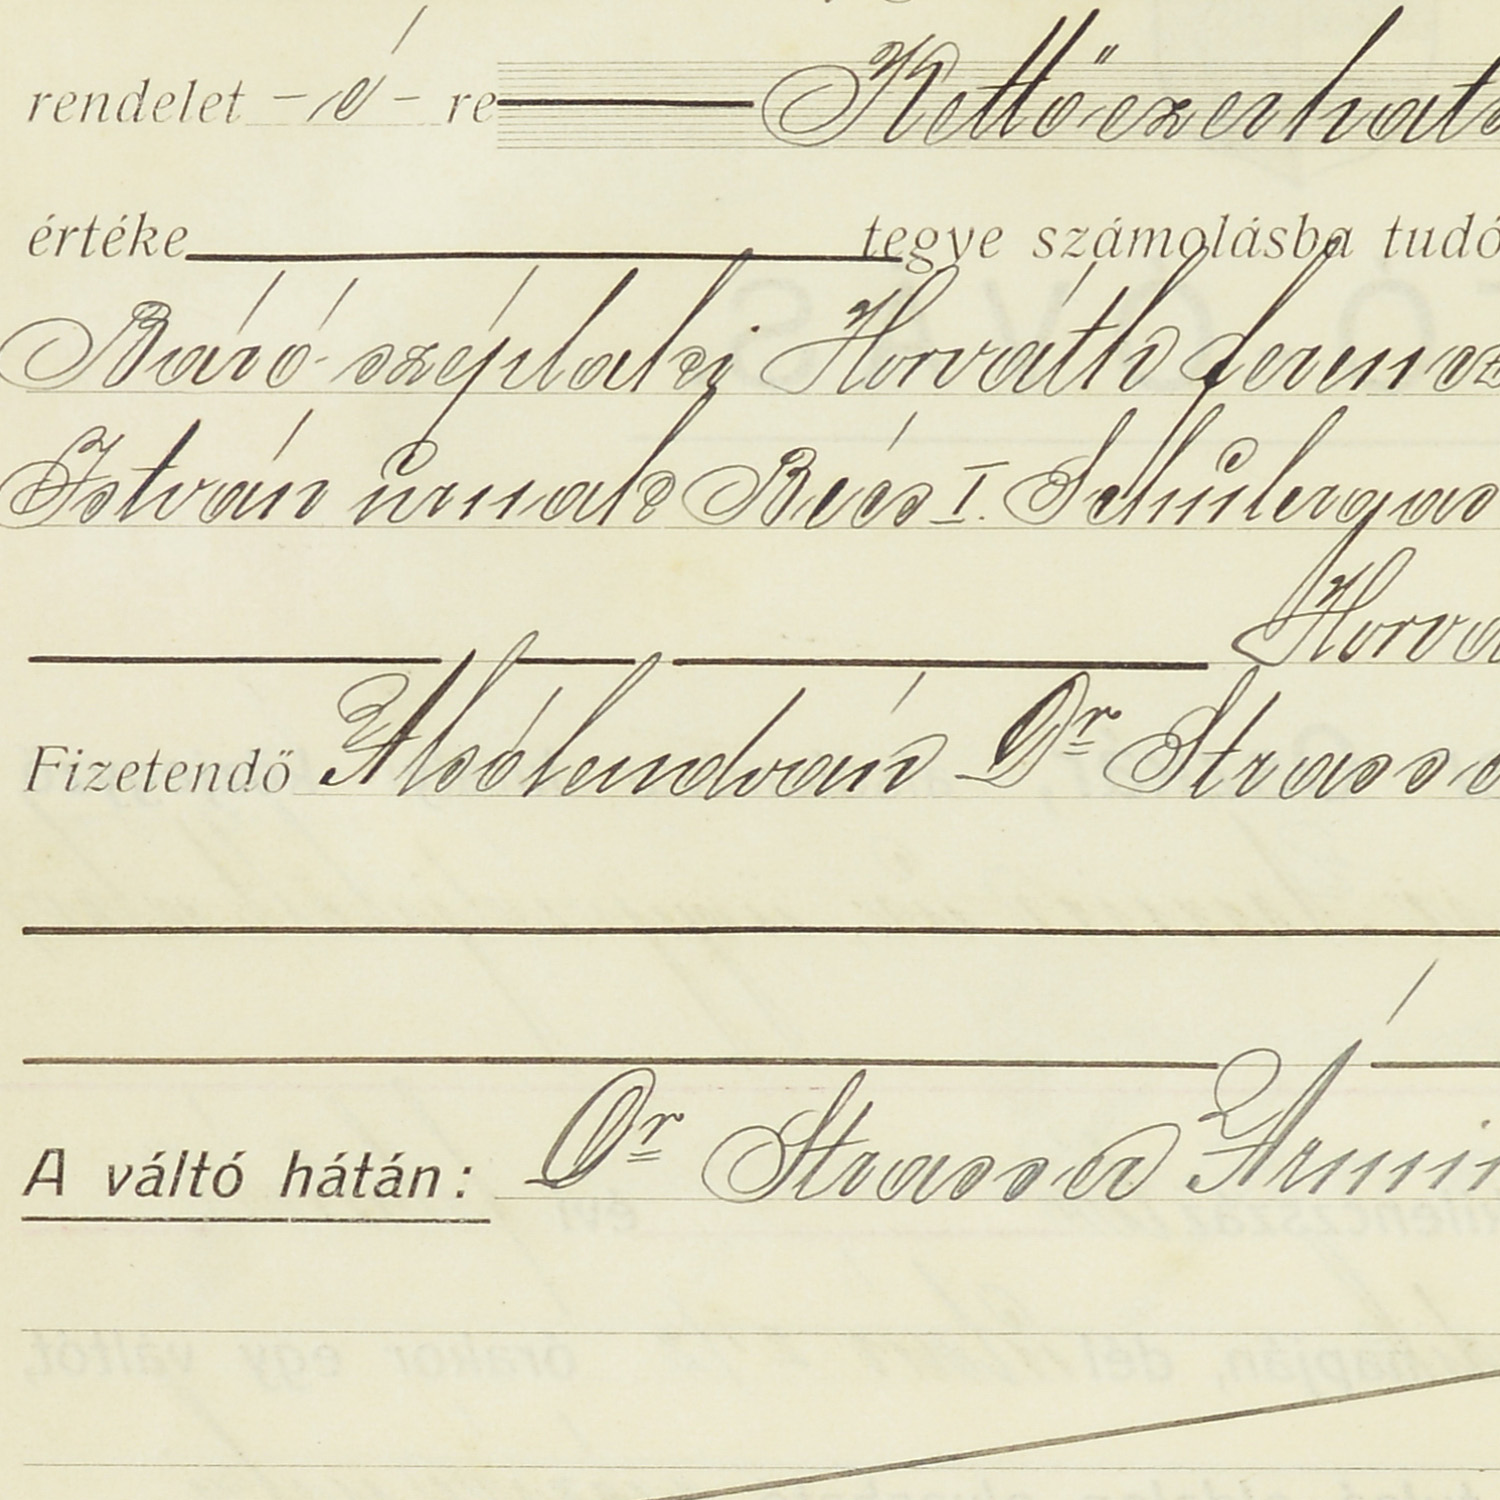 rendelet – ió – re Kettőezerhats
értéke tegye számolásba tudó
Báró széplaki Horváth ferencz
István úrnak Bécs I. Schulergas
Horva
Fizetendő Alsólendván Dr Strasse
A váltó hátán: Dr Strasser Ármin